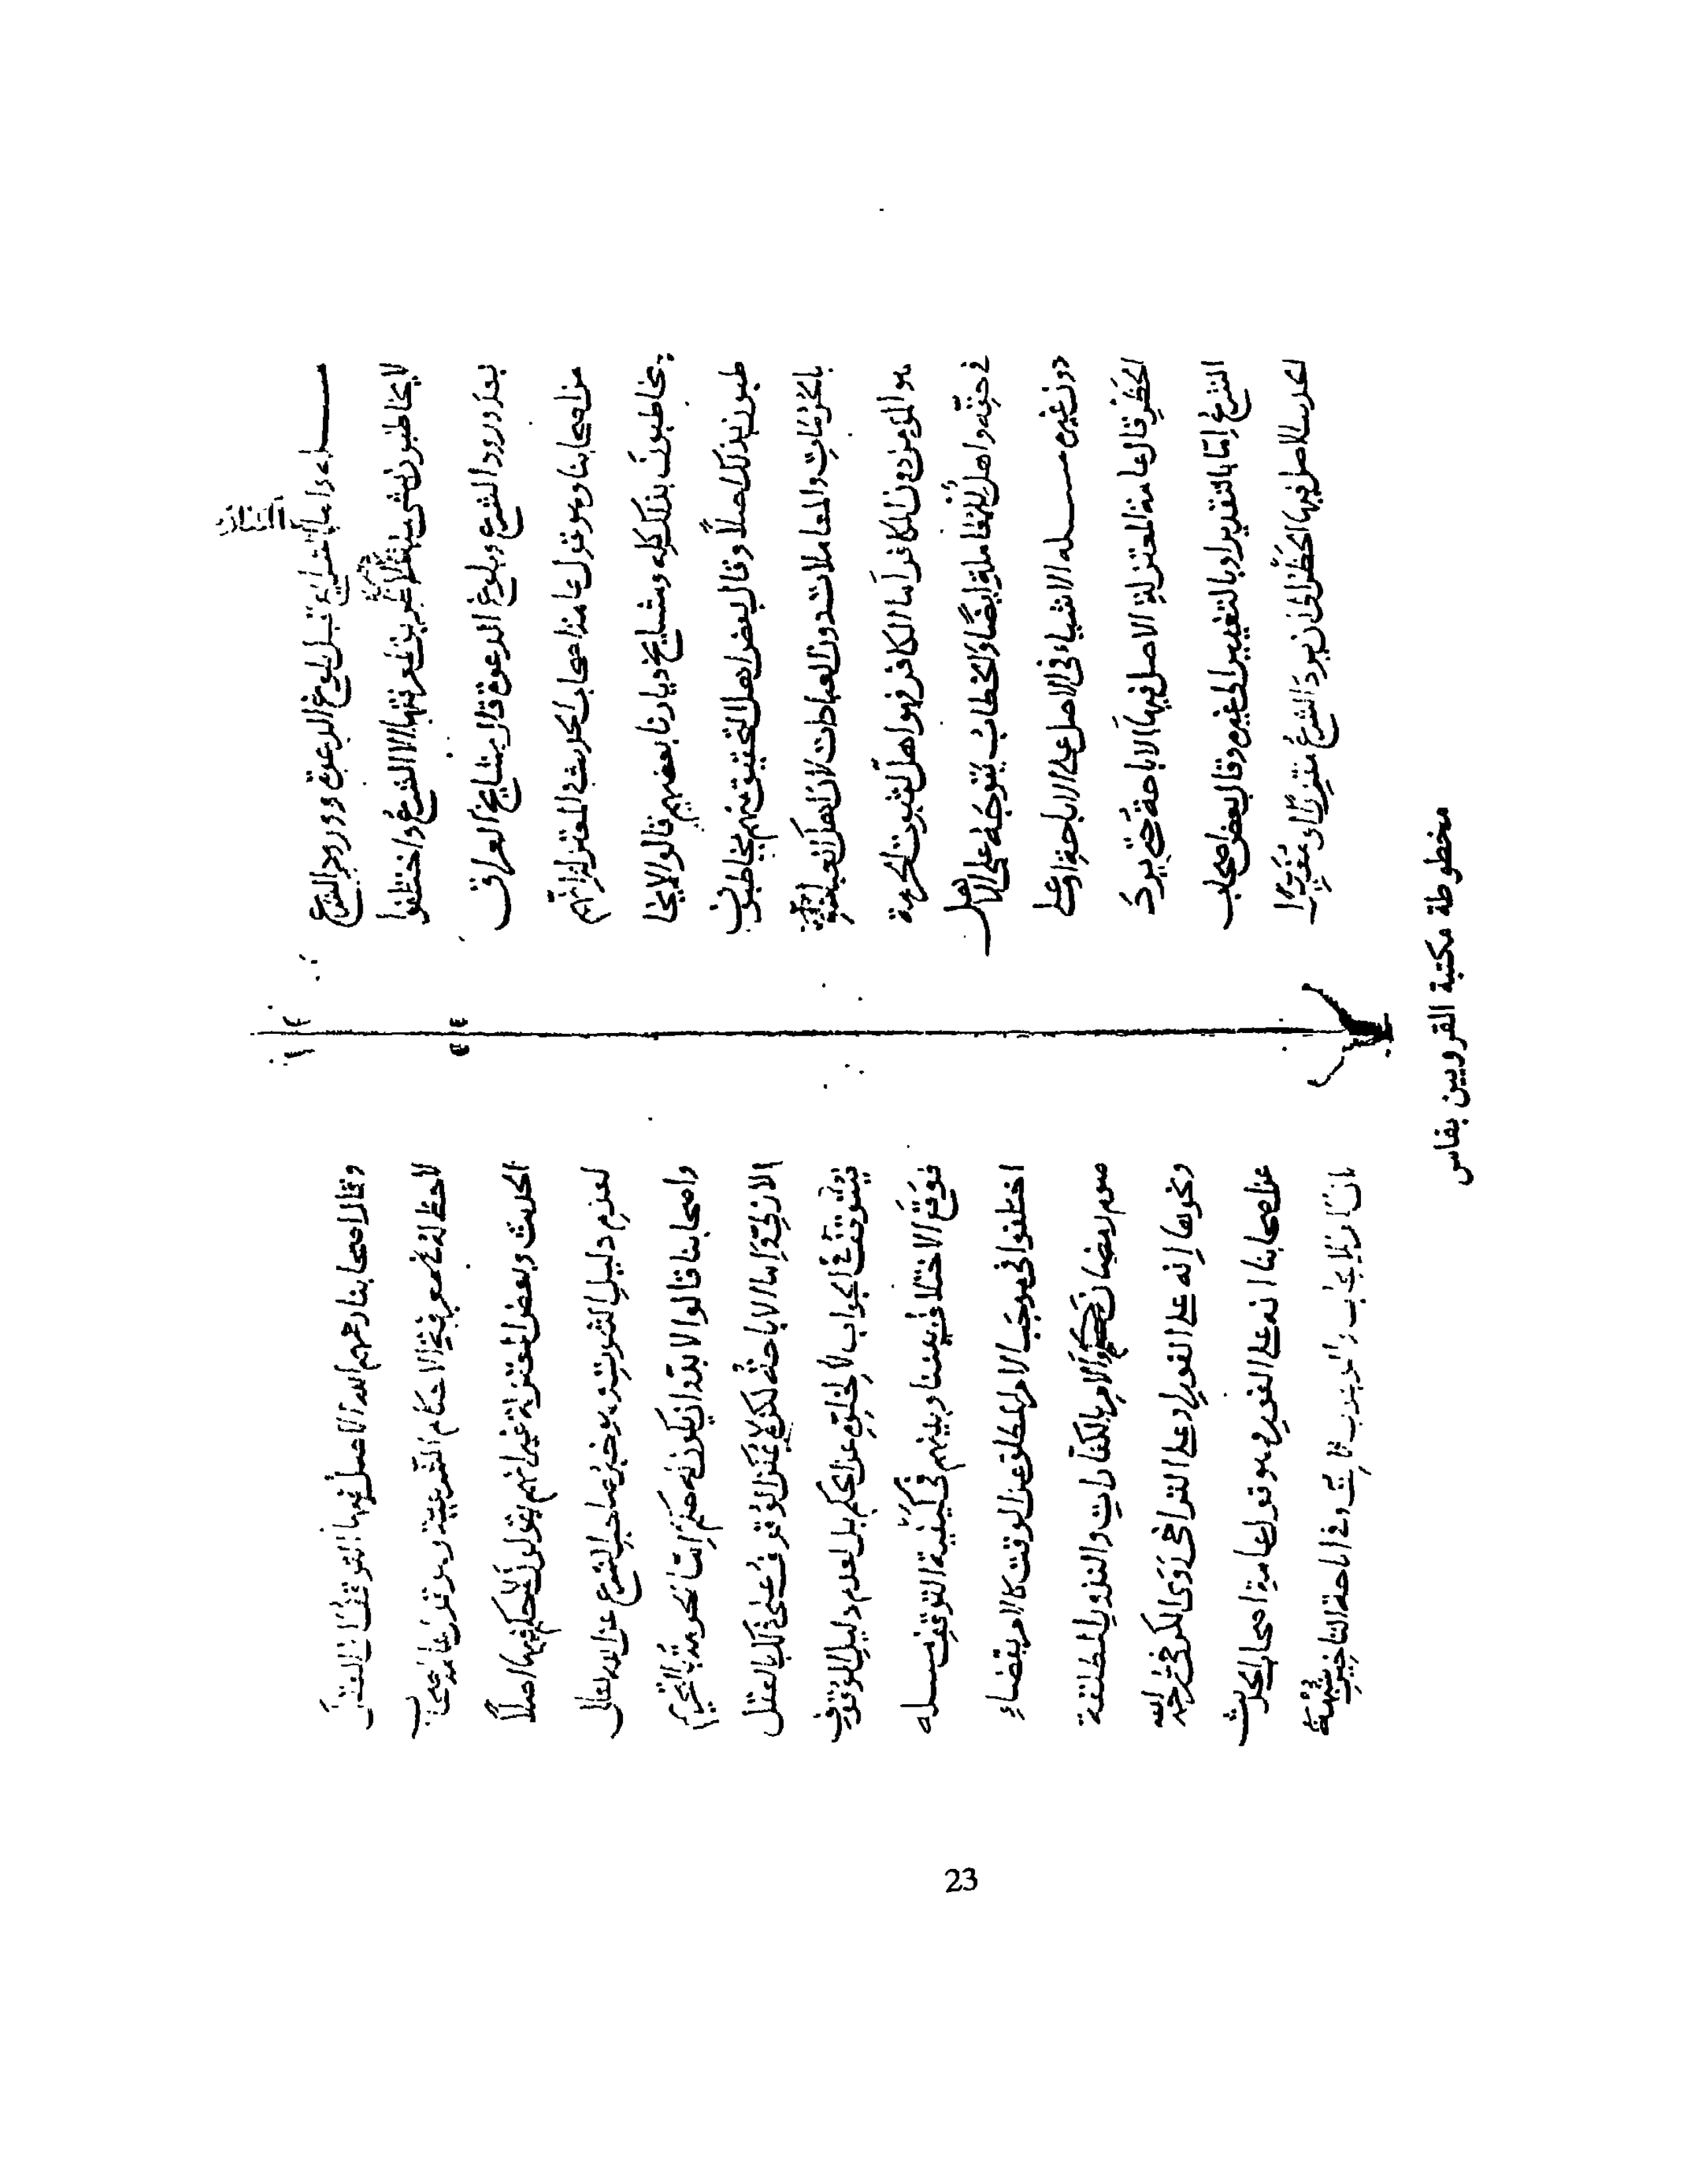 اء واما الشرايع قبل بلوغ الدعوة وورود الشرع
لا يخاطبون بشى لمعرفتها الا الشرع واختلفوا
بعد ورود الشرع وبلوغ الدعوة قال مشايخ العراق
من اصحابنا وهو قول عامة اصحاب الحديث والمعتزلة انهم
يخاطبون بذلك كله ومشايخ ديارنا بعضهم قالوا لا يخا
طبون بذلك اصلا وقال بعض اهل التحقيق منهم يخاطبون
بالحرمات والمعاملات دون العبادات لان اهل العبادة
هو المؤمن دون الكافر اما الكافر فهو اهل لثبوت الحرمة
في حقه واهل للمعاملة ايضا والخطاب يتوجه على الاهل
دون غيره مسله الاشياء فى الاصل على الاباحة او على
الحظر قال عامة المعتزلة الاصل فيها الاباحة حتى يرد
الشرع إما بالتقدير او بالتغيير الى غيره وقال بعض اصحاب
الحديث الاصل فيها الحظر الى ان يرد الشرع مقررا او مغيرا
وقال اصحابنا رحمهم الله الاصل فيها التوقف لان العقل
لاحظ له فى معرفة الاحكام الشرعية وهو قول عامة اصحاب
الحديث وبعض المعتزلة غير انهم يقولون لا حكم فيها اصلا
لعدم دليل الثبوت وهو خبر صاحب الشرع عن الله تعالى
واصحابنا قالوا لا بد وان يكون له حكم اما الحرمة بالتحريم
الازلي واما الاباحة لكن لا يمكن الوقوف على ذلك بالعقل
فيتوقف فى الجواب لا لخلوه عن الحكم بل لعدم دليل الوقوف
فوقع الاختلاف بيننا وبينهم فى كيفية التوقف مسله
اختلفوا فى موجب الامر المطلق عن الوقت كالامر بقضاء
صوم رمضان والامر بالكفارات والنذور المطلقة
ونحوها إنه على الفور او على التراخى روى الكرخى رحمه الله
عن اصحابنا انه على الفور وهو قول عامة اصحاب الحديث
وفى اباحة التاخير شبهة
مخطوطة مكتبة القرويين بفاس
23